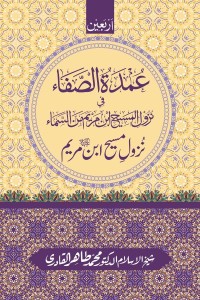 اربعین
عُمْدَةُ الصَّفَاء
فِي
نُزُولِ الْمَسِيحِ ابْنِ مَرْيَمَ مِنَ السَّمَاء
نُزولِ مسیح ابنِ مریم
شیخ الاسلام الدکتور محمد طاہر القادری